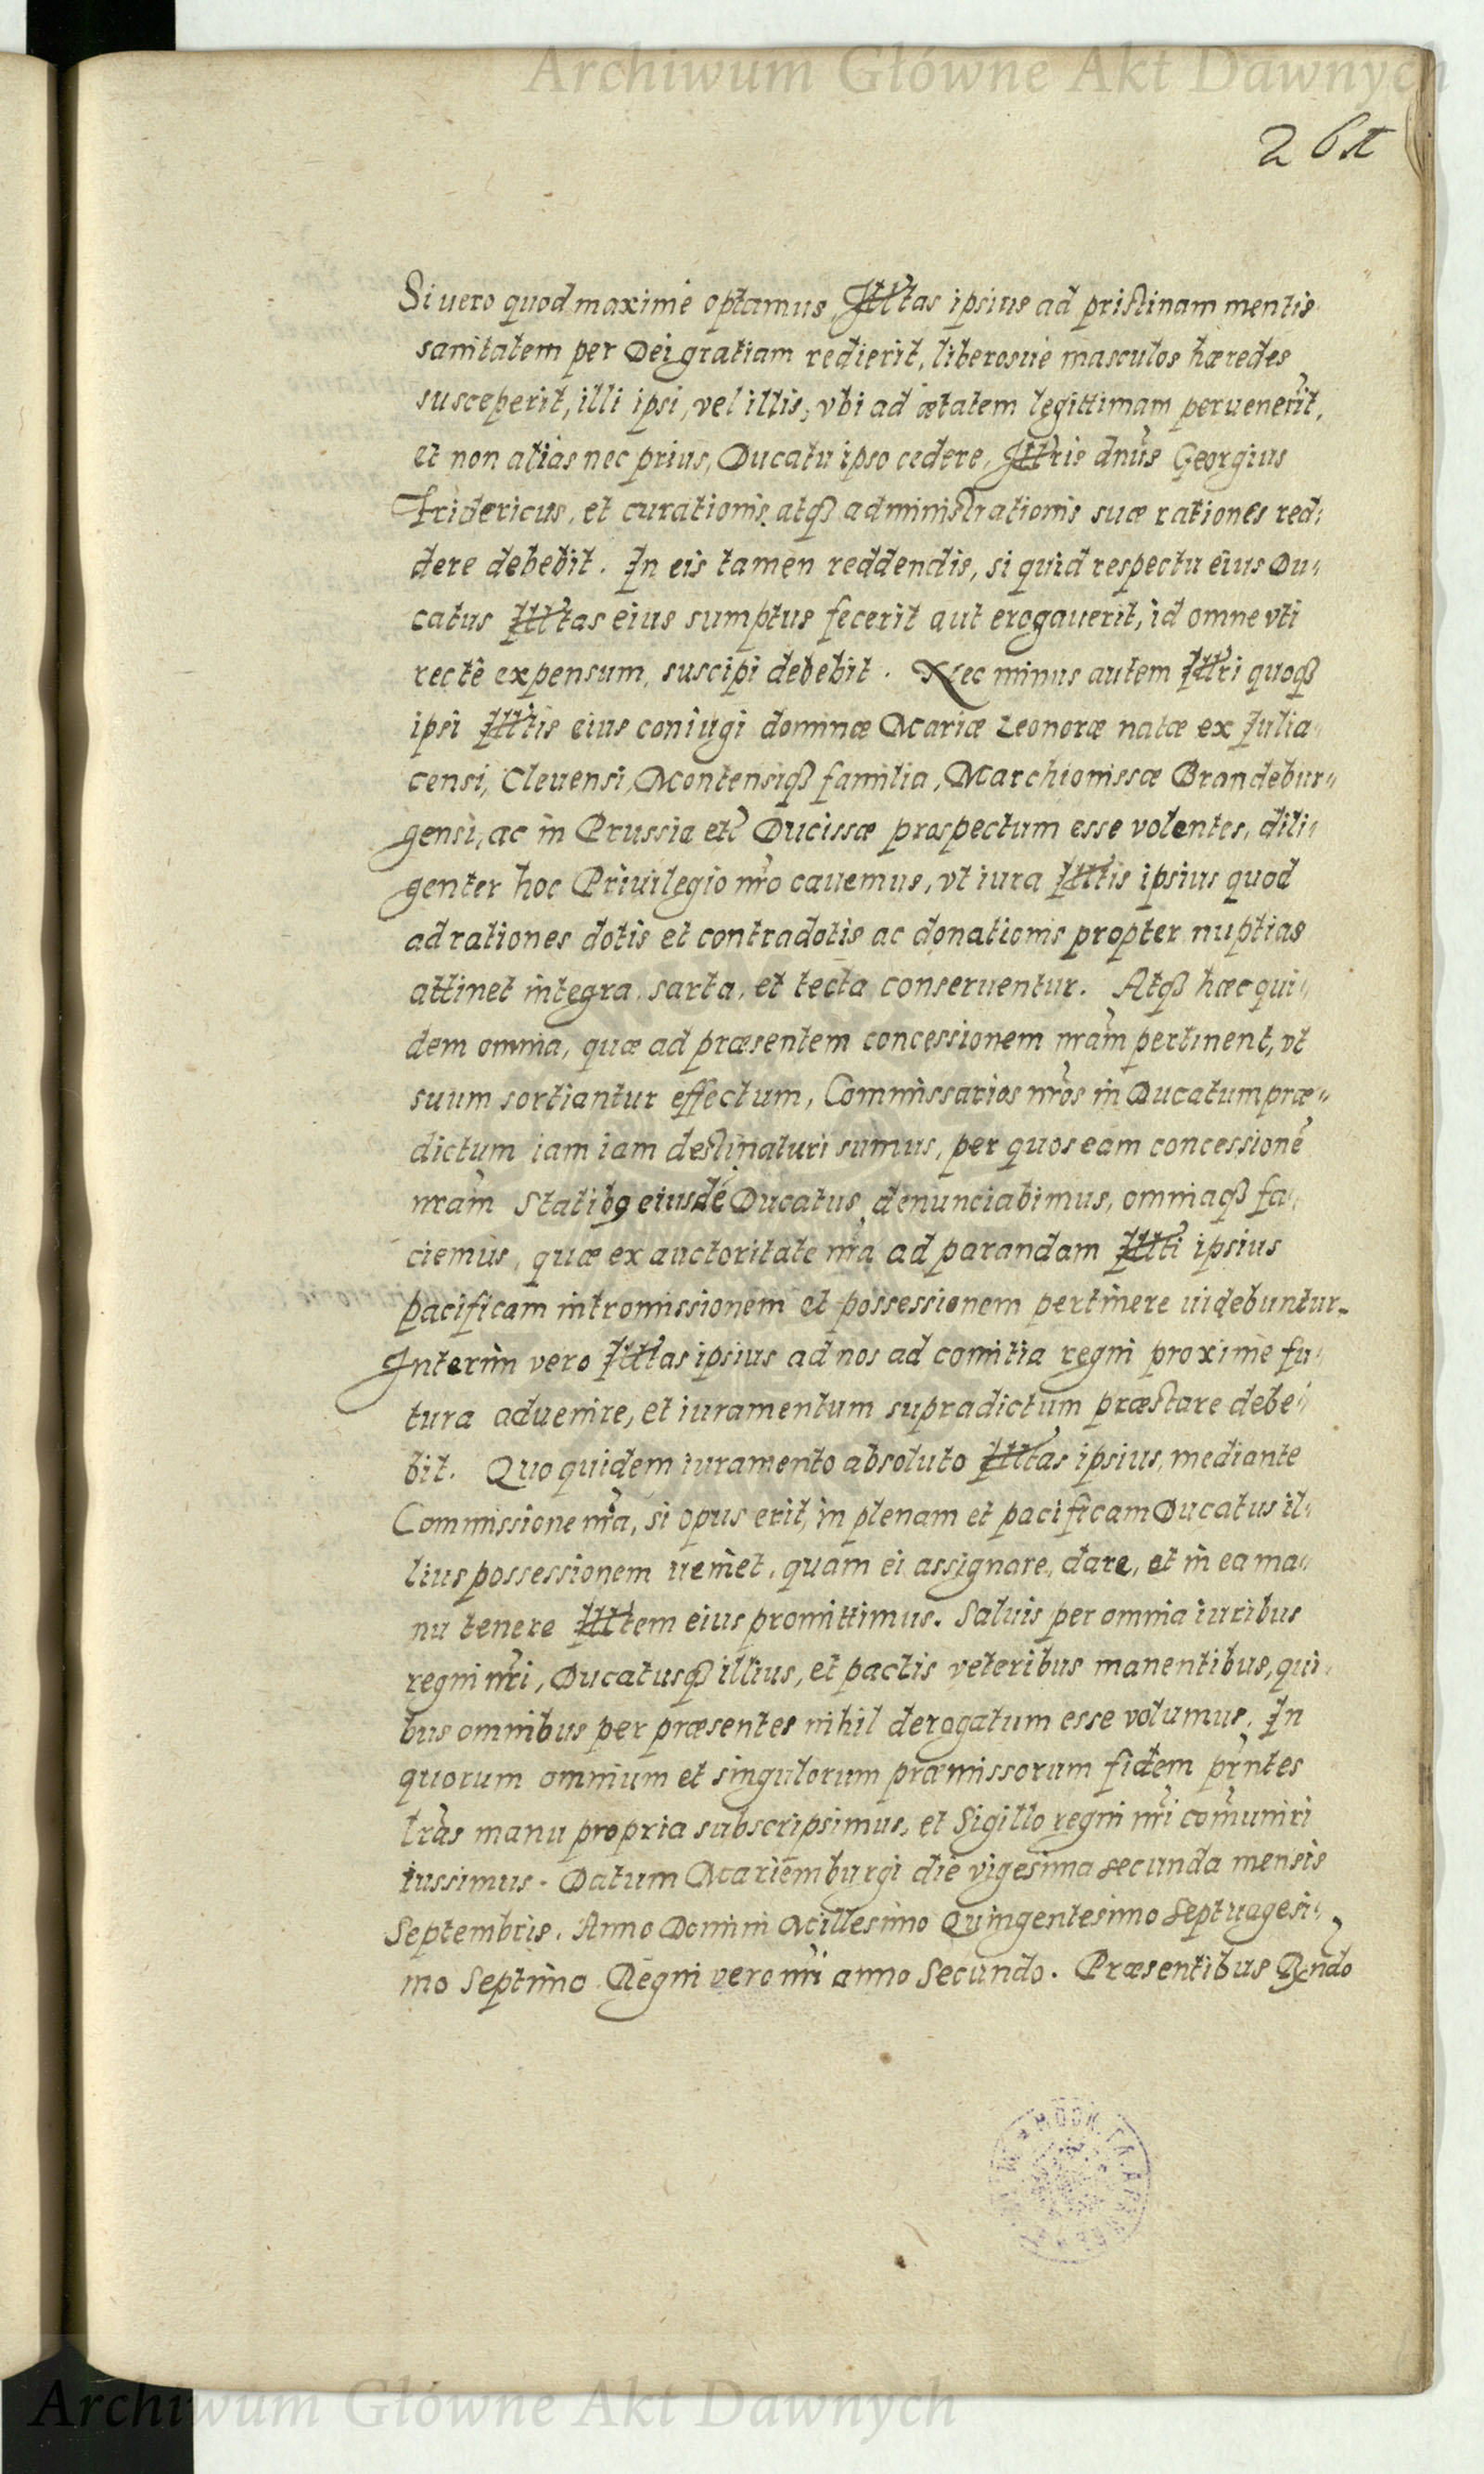 Archiwum Główne Akt Dawnych
Si uero quod maxime optamus, Illtas ipsius ad pristinam mentis
sanitatem per Dei gratiam redierit, liberosue masculos hæredes
susceperit, illi ipsi, vel illis, vbi ad ætatem legittimam peruenerit,
et non aliàs nec prius, Ducatu ipso cedere, Illris dnus Georgius
Fridericus, et curationis atq administrationis suæ rationes red,
dere debebit. In eis tamen reddendis, si quid respectu eius Du,
catus Illtas eius sumptus fecerit aut erogauerit, id omne vti
rectè expensum, suscipi debebit. Nec minus autem Illri quoq
ipsi Illtis eius coniugi dominæ Mariæ Leonoræ natæ ex Julia,
censi, Cleuensi, Montensiq familia, Marchionissæ Brandebur,,
gensi, ac in Prussia etc Ducissæ prospectum esse volentes, dili,
genter hoc Priuilegio nro cauemus, vt iura Illtis ipsius quod
ad rationes dotis et contradotis ac donationis propter nuptias
attinet integra, sarta, et tecta conseruentur. Atq hæc qui,
dem omnia, quæ ad præsentem concessionem nram pertinent, vt
suum sortiantur effectum, Commissarios nros in Ducatum præ,,
dictum iam iam destinaturi sumus, per quos eam concessionē
nram Statib9 eiusdē Ducatus denunciabimus, omniaq fa,
ciemus, quæ ex auctoritate nra ad parandam Illti ipsius
pacificam intromissionem et possessionem pertinere uidebuntur.
Interim vero Illtas ipsius ad nos ad comitia regni proximè fu,
tura aduenire, et iuramentum supradictum præstare debe,
bit. Quo quidem iuramento absoluto Illtas ipsius, mediante
Commissione nra, si opus erit, in plenam et pacificam Ducatus il,
lius possessionem ueniet, quam ei assignare, dare, et in ea ma,
nu tenere Illtem eius promittimus. Saluis per omnia iuribus
regni nri, Ducatusq illius, et pactis veteribus manentibus, qui,
bus omnibus per præsentes nihil derogatum esse volumus. In
quorum omnium et singulorum præmissorum fidem prntes
lras manu propria subscripsimus, et Sigillo regni nri comuniri
iussimus. Datum Mariemburgi die vigesima secunda mensis
Septembris. Anno Domini Millesimo Quingentesimo Septuagesi,
mo Septimo. Regni vero nri anno Secundo. Præsentibus Rndo
Archiwum Główne Akt Dawnych